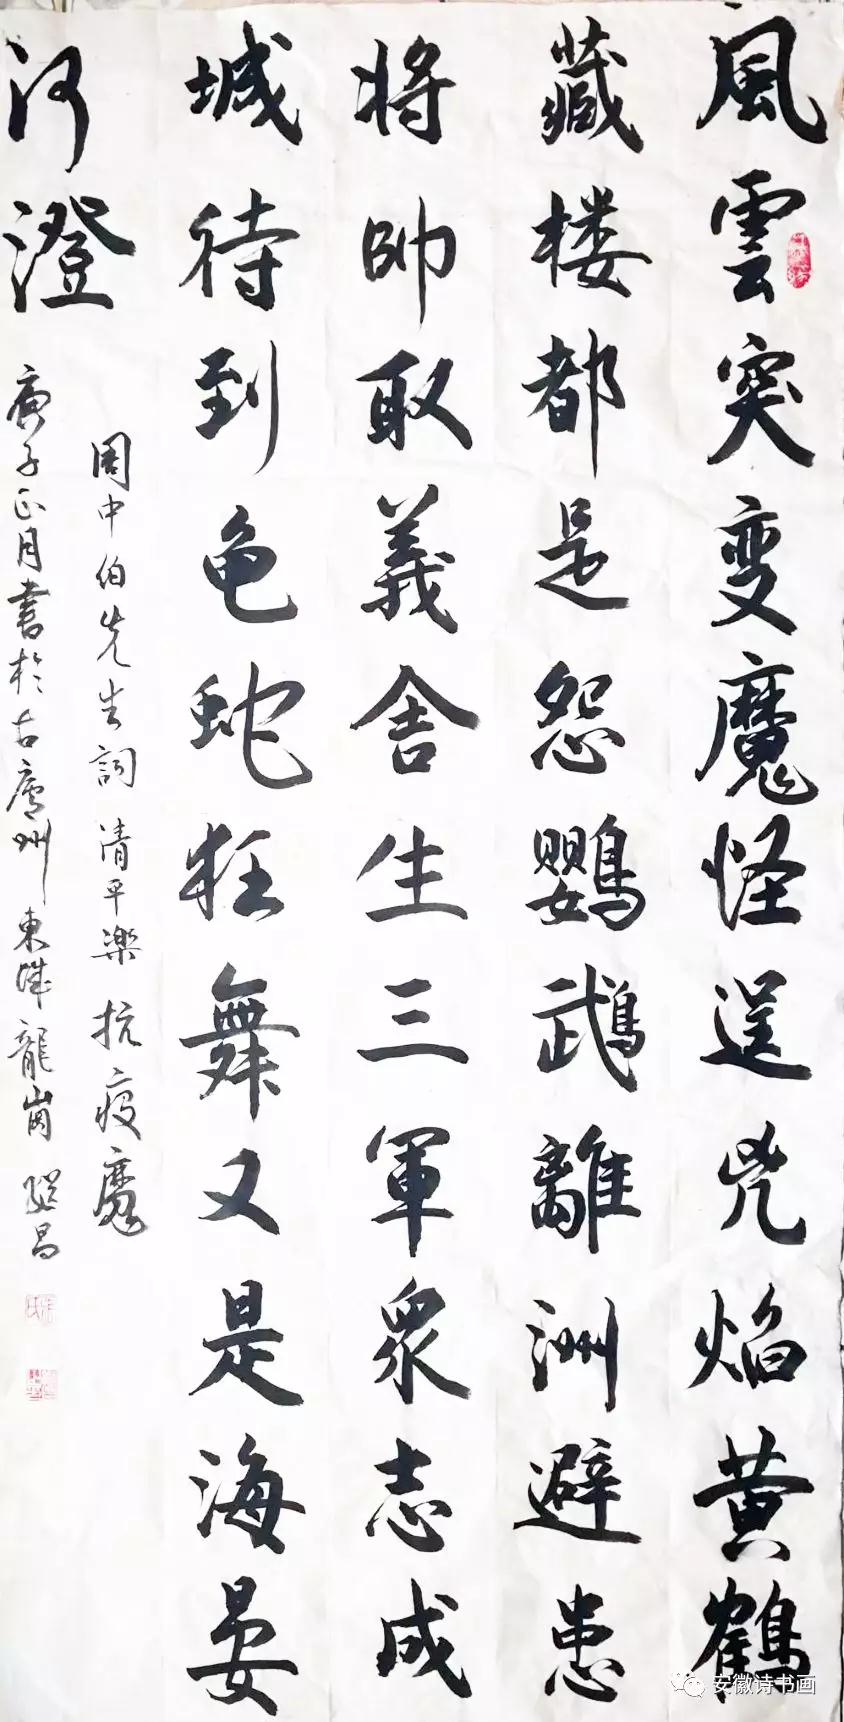 風雲突变魔怪逞兇焰黄鹤
藏楼都是怨鹦鹉離洲避患
将帥取義舍生三軍眾志成
城待到龟蛇狂舞又是海晏
河澄
周中伯先生詞清平樂抗疫魔
庚子正月書於古廬州東城龍崗
安徽诗书画